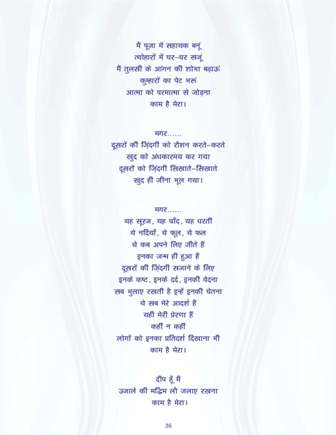 मैं पूजा में सहायक बनूं
त्योहारों में घर-घर सजूं
मैं तुलसी के आंगन की शोभा बढ़ाऊं
कुम्हारों का पेट भरूं
आत्मा को परमात्मा से जोड़ना
काम है मेरा।
मगर......
दूसरों की जिंदगी को रौशन करते-करते
खुद को अंधकारमय कर गया
दूसरों को जिंदगी सिखाते-सिखाते
खुद ही जीना भूल गया।
मगर......
यह सूरज, यह चाँद, यह धरती
ये नदियाँ, ये फूल, ये फल
ये कब अपने लिए जीते हैं
इनका जन्म ही हुआ है
दूसरों की जिंदगी सजाने के लिए
इनके कष्ट, इनके दर्द, इनकी वेदना
सब भुलाए रखती है इन्हें इनकी चेतना
ये सब मेरे आदर्श हैं
यही मेरी प्रेरणा हैं
कहीं न कहीं
लोगों को इनका प्रतिदर्श दिखाना भी
काम है मेरा।
दीप हूँ मैं
उजाले की मद्धिम लौ जलाए रखना
काम है मेरा।
36